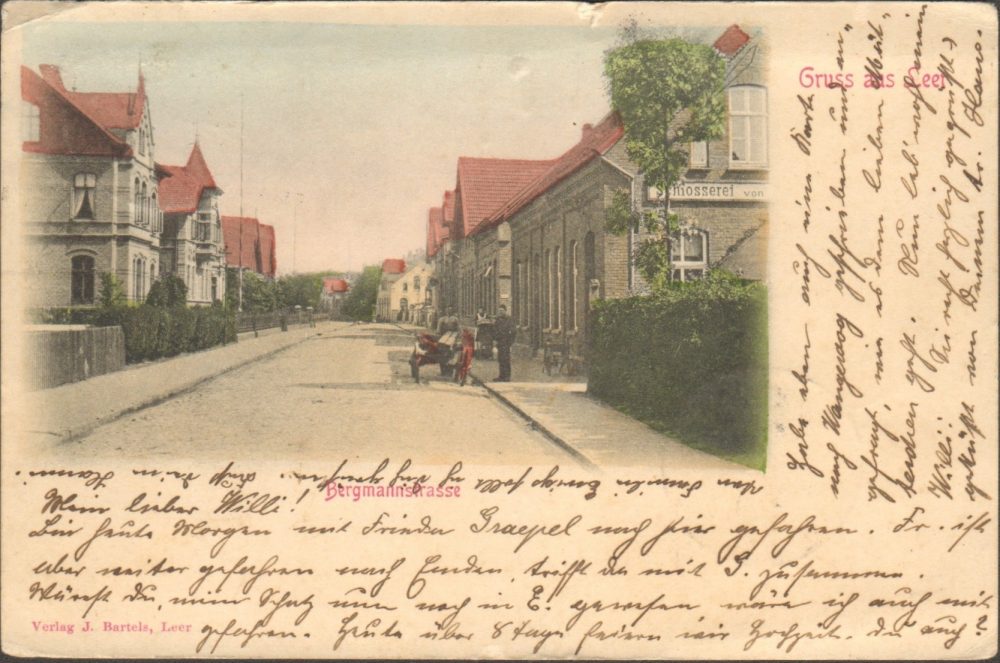 Gruss aus Leer
Schlosserei von
Bergmannstrasse
Mein lieber Willi!
Bin heute Morgen mit Frieda Graepel nach hier gefahren. Fr. ist
aber weiter gefahren nach Emden, trifft da mit G. zusammen.
Würst Du, mein Schatz nun noch in E. gewesen wäre ich auch mit
gefahren. Heute über 8 Tage feiern wir Hochzeit. Du auch?
Verlag J. Bartels, Leer
Habe eben auch eine Karte
nach Wangeroog geschrieben und an-
gefragt, was es dem lieben
geht. Nun leb' wohl mein
Willi! Sei recht herzlich gegrüßt &
geküßt von Deinem tr. Hanne.